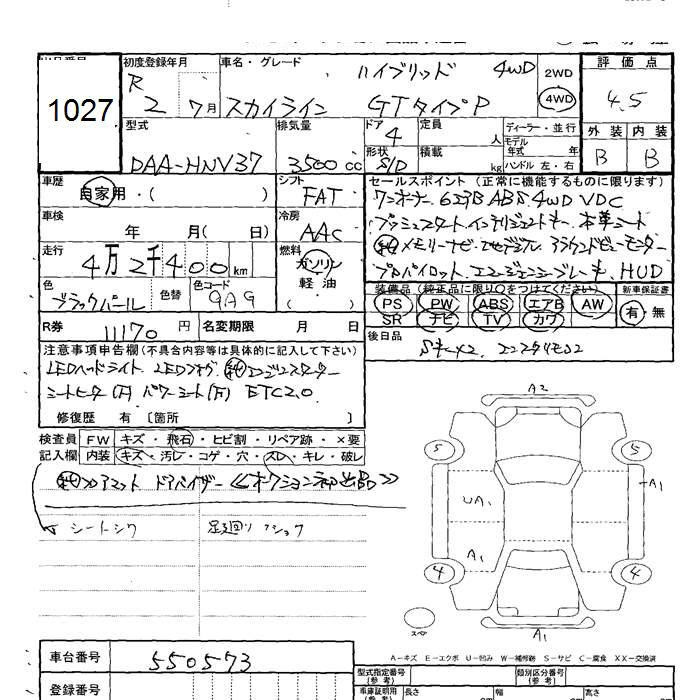 初度登録年月 車名・グレード ハイブリッド 4WD 2WD 評価点
1027
R 2 7月 スカイライン GTタイプP 4WD 4.5
型式 排気量 ドア 4 定員 人 ディーラー・並行 外装 内装
モデル年式 年
DAA-HNV37 3500cc 形状 S/D 積載 kg ハンドル 左・右 B B
車歴 自家用・( ) シフト FAT セールスポイント(正常に機能するものに限ります)
ワンオーナー ABS.4WD VDC
車検 年 月( 日) 冷房 AAC プッシュスタート.インテリジェントキー.本革シート
走行 4万2千400km 燃料 ガソリン 軽油 ( )
純メモリーナビ アラウンドビューモニター
プロパイロット.エマージェンシーブレーキ.HUD
色 ブラックパール 色替 色コード GAG
装備品(純正品に限り○をつけてください) 新車保証書
PS PW ABS エアB AW 有・無
SR ナビ TV カワ
R券 11170円 名変期限 月 日
後日品 Sキー×2.
注意事項申告欄(不具合内容等は具体的に記入して下さい)
LEDヘッドライト LEDフォグ 純エンジンスターター
シートヒーター(F) パワーシート(F) ETC2.0
修復歴 有 〔箇所 〕
検査員記入欄 FW キズ・飛石・ヒビ割・リペア跡・×要
内装 キズ・汚レ・コゲ・穴・スレ・キレ・破レ
純 マット ドアバイザー ≪オークション初出品≫
シートシワ 足廻り
A2
5 5
A1
UA1
A1
4 4
スペア
A1
A-キズ E-エクボ U-凹み W-補修跡 S-サビ C-腐食 XX-交換済
車台番号 550573
型式指定番号(参考) 類別区分番号(参考)
登録番号 車庫証明用(参考) 長さ 幅 高さ